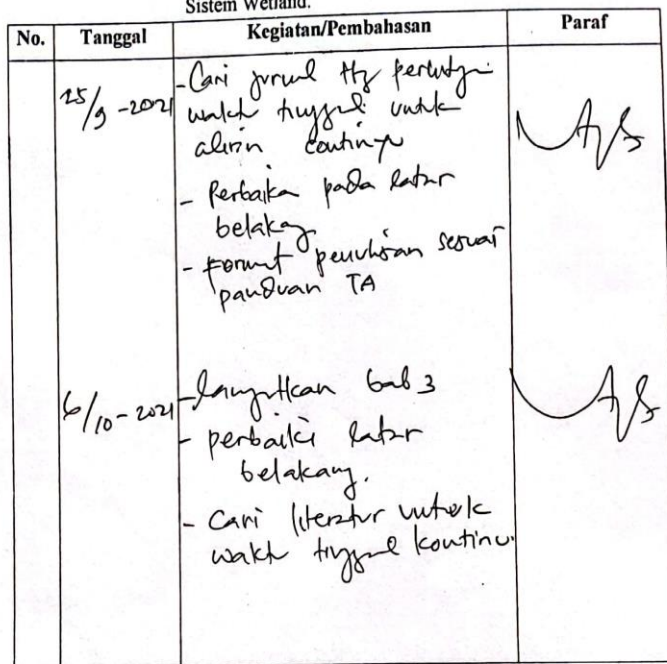 Sistem Wetland.
No. Tanggal Kegiatan/Pembahasan Paraf
25/9-2021 - Cari jurnal ttg perhitungan
waktu tinggal untuk
aliran continyu
- Perbaika pada latar
belakang
- Format penulisan sesuai
panduan TA
6/10-2021 - lanjutkan bab 3
- perbaiki latar
belakang.
- Cari literatur untuk
waktu tinggal kontinu.